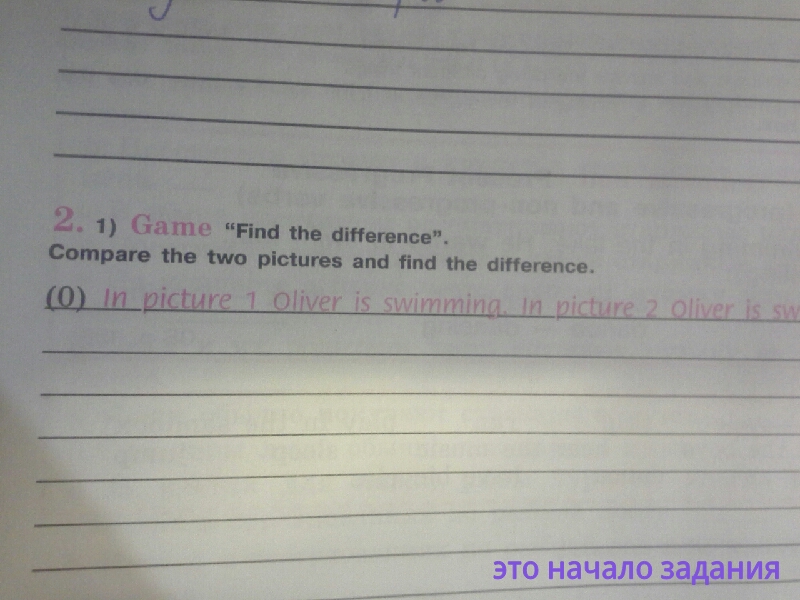 2. 1) Game "Find the difference".
Compare the two pictures and find the difference.
(0) In picture 1 Oliver is swimming. In picture 2 Oliver is sw
это начало задания